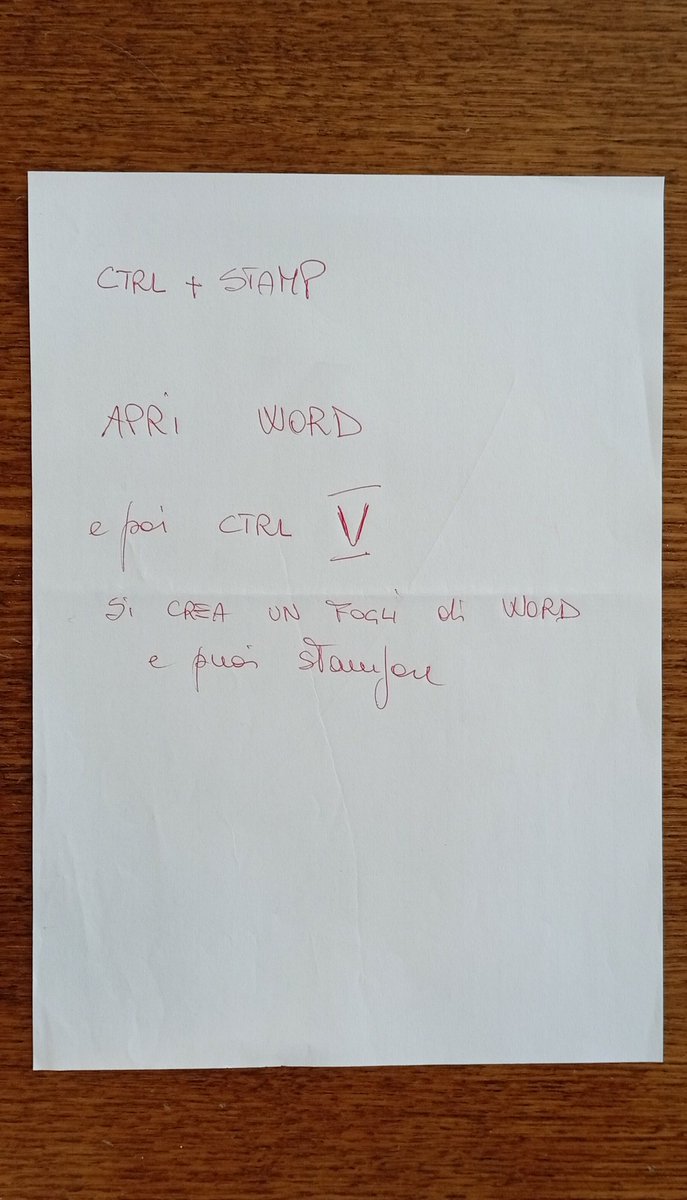 CTRL + STAMP
APRi WORD
e poi CTRL V
Si CREA UN FOGLi di WORD
e puoi stampare